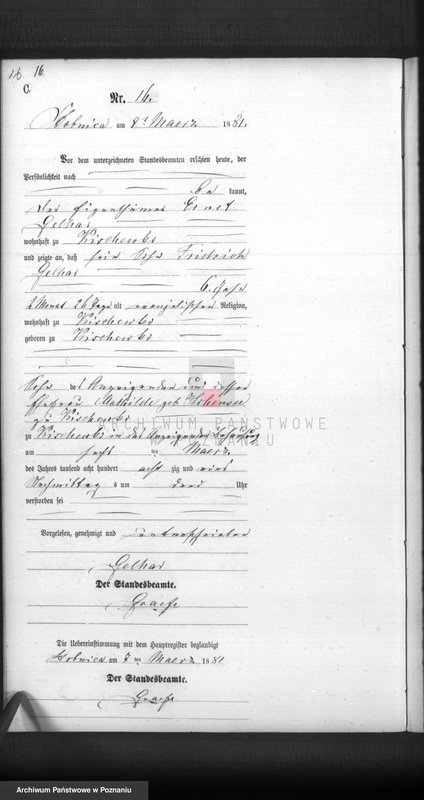 16 16.
C.
Nr. 16.
am Maerz 1881.
Vor dem unterzeichneten Standesbeamten erschien heute, der
Persönlichkeit nach
be kannt,
der Eigenthümer Ernst
Gelhar
wohnhaft zu
und zeigte an, daß sein Sohn Friedrich
Gelhar
6 Jahr
Monat 26 Tage alt evangelischer Religion,
wohnhaft zu
geboren zu
Sohn des Anzeigenden und dessen
Ehefrau Mathilde geb.
zu
zu in des Anzeigenden Behausung
am ten Maerz
des Jahres tausend acht hundert acht zig und eins
Nachmittag s um drei Uhr
verstorben sei
Vorgelesen, genehmigt und unterschrieben
Gelhar
Der Standesbeamte.
Graefe
Die Uebereinstimmung mit dem Hauptregister beglaubigt
am 7 ten Maerz 1881
Der Standesbeamte.
Graefe
ARCHIWUM PAŃSTWOWE
W POZNANIU
Archiwum Państwowe w Poznaniu